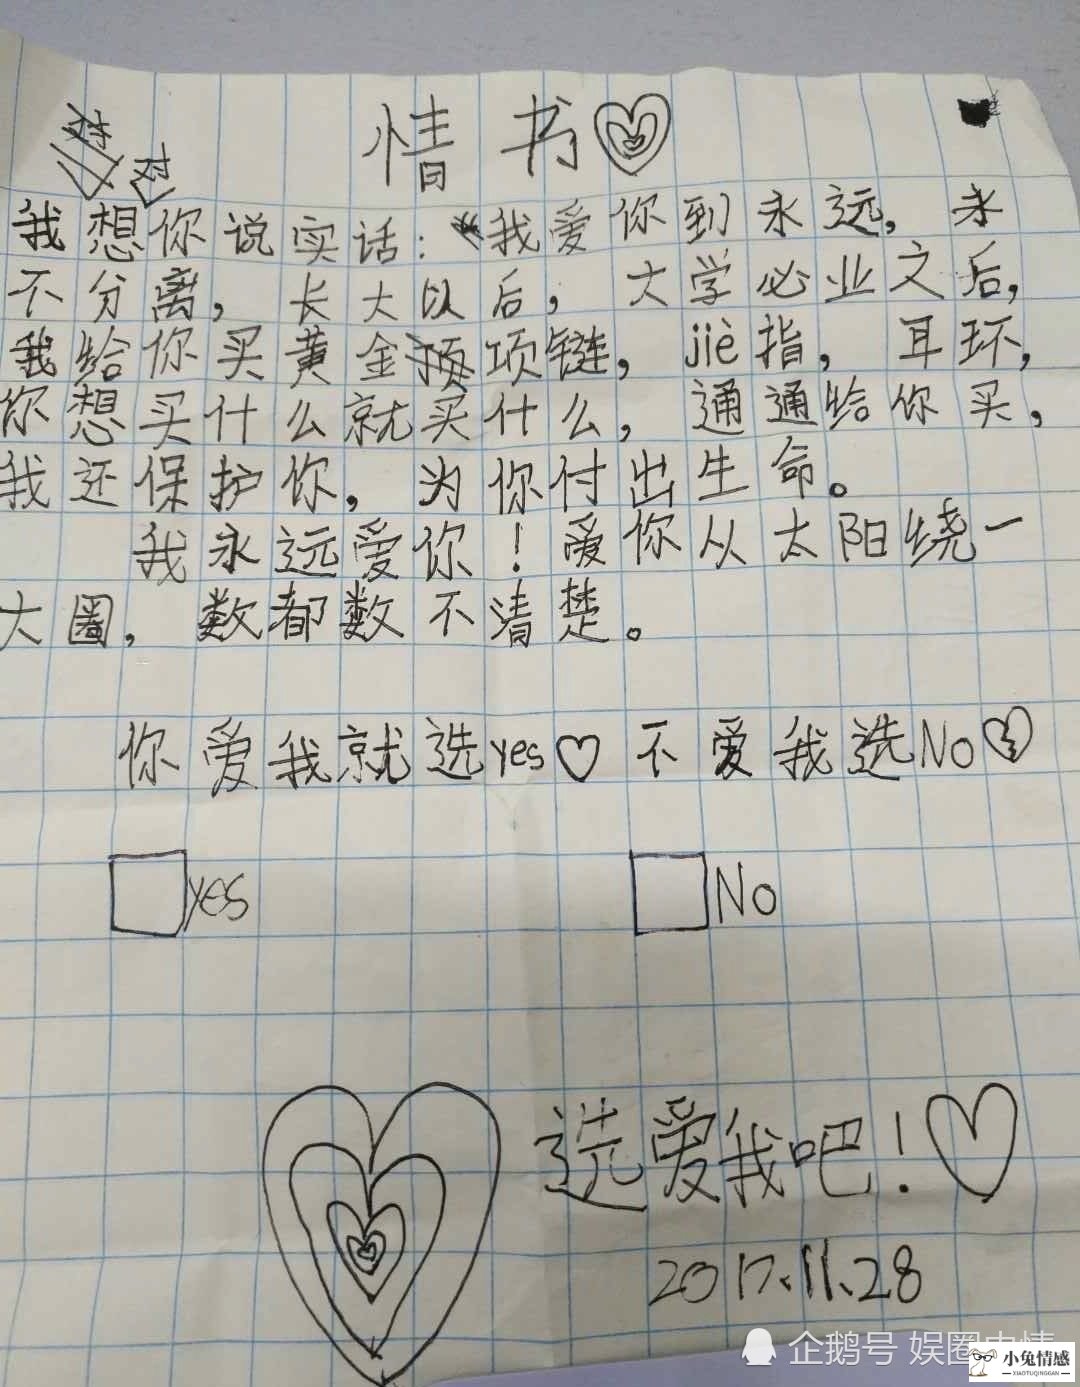 情书
我想你说实话：“我爱你到永远，永
不分离，长大以后，大学必业之后，
我给你买黄金项链，jiè指，耳环，
你想买什么就买什么，通通给你买，
我还保护你，为你付出生命。
我永远爱你！爱你从太阳绕一
大圈，数都数不清楚。
你爱我就选yes♡ 不爱我选No
yes No
选爱我吧！♡
2017.11.28
企鹅号 娱圈
小兔情感
XIAOTUQINGGAN